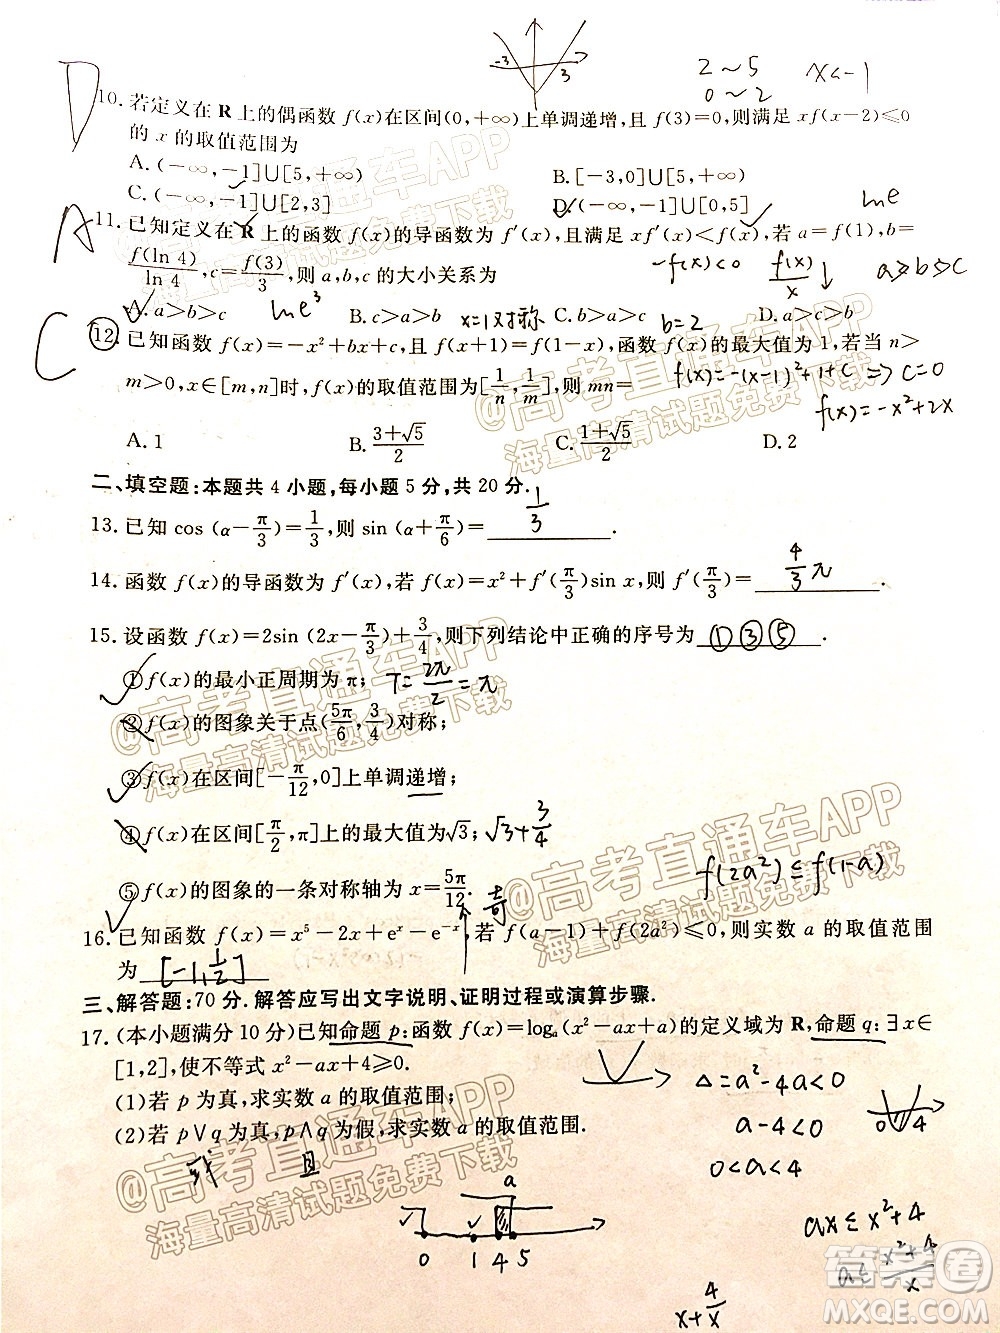 -3 3
2～5 x<-1
0～2
D
10. 若定义在 R 上的偶函数 f(x)在区间(0,+∞)上单调递增,且 f(3)=0,则满足 xf(x-2)≤0
的 x 的取值范围为
A. (-∞,-1]∪[5,+∞) B. [-3,0]∪[5,+∞)
C. (-∞,-1]∪[2,3] D. (-∞,-1]∪[0,5] lne
A
11. 已知定义在 R 上的函数 f(x)的导函数为 f′(x),且满足 xf′(x)<f(x),若 a=f(1),b=
f(ln 4)/ln 4,c=f(3)/3,则 a,b,c 的大小关系为 -f(x)<0 f(x)/x↓ a>b>c
A. a>b>c lne³ B. c>a>b C. b>a>c D. a>c>b
x=1对称 b=2
C
12. 已知函数 f(x)=-x²+bx+c,且 f(x+1)=f(1-x),函数 f(x)的最大值为 1,若当 n>
m>0,x∈[m,n]时,f(x)的取值范围为[1/n,1/m],则 mn=
f(x)=-(x-1)²+1+C⇒c=0
f(x)=-x²+2x
A. 1 B. (3+√5)/2 C. (1+√5)/2 D. 2
二、填空题:本题共 4 小题,每小题 5 分,共 20 分.
13. 已知 cos (α-π/3)=1/3,则 sin (α+π/6)= 1/3 .
14. 函数 f(x)的导函数为 f′(x),若 f(x)=x²+f′(π/3)sin x,则 f′(π/3)= 4/3 π .
15. 设函数 f(x)=2sin (2x-π/3)+3/4,则下列结论中正确的序号为 ①③⑤ .
①f(x)的最小正周期为 π; T=2π/2=π
②f(x)的图象关于点(5π/6,3/4)对称;
③f(x)在区间[-π/12,0]上单调递增;
④f(x)在区间[π/2,π]上的最大值为√3; √3+3/4
f(2a²)≤f(1-a)
⑤f(x)的图象的一条对称轴为 x=5π/12. 奇
16. 已知函数 f(x)=x⁵-2x+eˣ-e⁻ˣ,若 f(a-1)+f(2a²)≤0,则实数 a 的取值范围
为 [-1,1/2] .
三、解答题:70 分. 解答应写出文字说明、证明过程或演算步骤.
17. (本小题满分 10 分)已知命题 p:函数 f(x)=logₐ(x²-ax+a)的定义域为 R,命题 q:∃x∈
[1,2],使不等式 x²-ax+4≥0.
(1)若 p 为真,求实数 a 的取值范围;
(2)若 p∨q 为真,p∧q 为假,求实数 a 的取值范围.
或 且
△=a²-4a<0
a-4<0
0<a<4
0 4
a
0 1 4 5
ax≤x²+4
a≤(x²+4)/x
x+4/x
@高考直通车APP
海量高清试题免费下载
@高考直通车APP
海量高清试题免费下载
@高考直通车APP
海量高清试题免费下载
@高考直通车APP
海量高清试题免费下载
@高考直通车APP
海量高清试题免费下载
答案圈
MXQE.COM